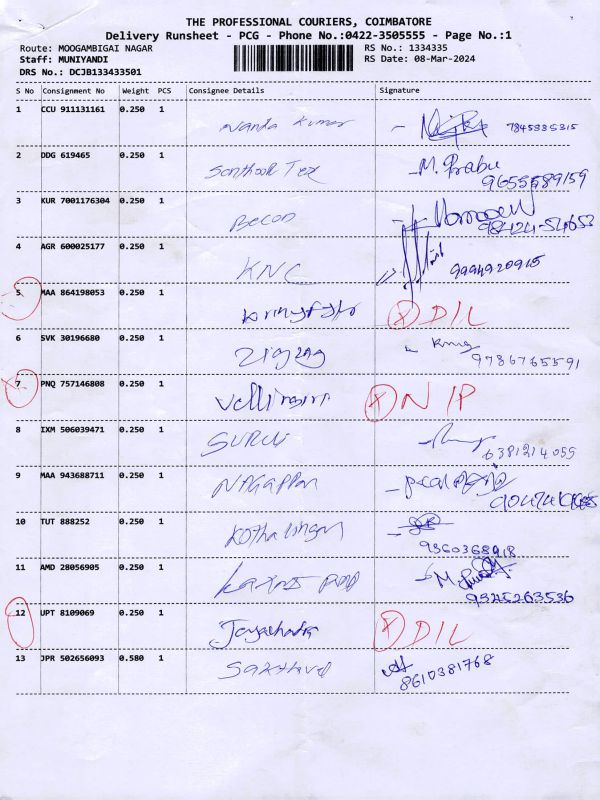 THE PROFESSIONAL COURIERS, COIMBATORE
Delivery Runsheet - PCG - Phone No.:0422-3505555 - Page No.:1
Route: MOOGAMBIGAI NAGAR RS No.: 1334335
Staff: MUNIYANDI RS Date: 08-Mar-2024
DRS No.: DCJB133433501
S No Consignment No Weight PCS Consignee Details Signature
1 CCU 911131161 0.250 1 Nanda Kumar 7845335315
2 DDG 619465 0.250 1 Santhosh Tex M. Prabu
9655589159
3 KUR 7001176304 0.250 1 Becon
4 AGR 600025177 0.250 1 KNC 9994920915
5 MAA 864198053 0.250 1 D/L
6 SVK 30196680 0.250 1 Zigzag
9786765591
7 PNQ 757146808 0.250 1 N/P
8 IXM 506039471 0.250 1
6381214055
9 MAA 943688711 0.250 1 Nagappan
10 TUT 888252 0.250 1 Kothalingam
9360368918
11 AMD 28056905 0.250 1
9345263536
12 UPT 8109069 0.250 1 D/L
13 JPR 502656093 0.580 1 Sakthivel
8610381768